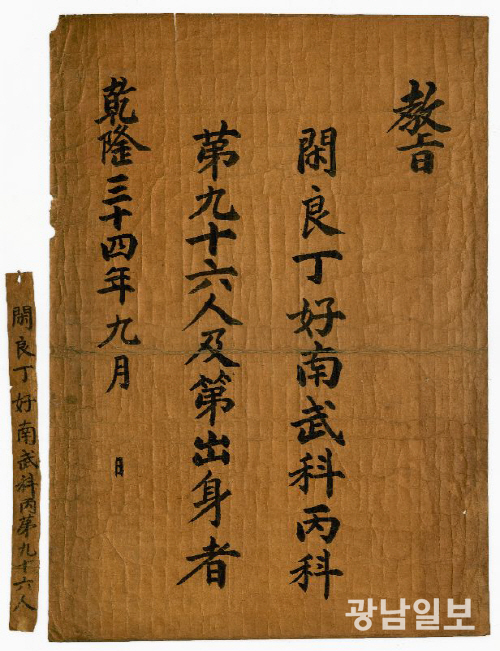 教旨
閑良丁好南武科丙科
苐九十六人及第出身者
乾隆三十四年九月 日
閑良丁好南武科丙第九十六人
광남일보